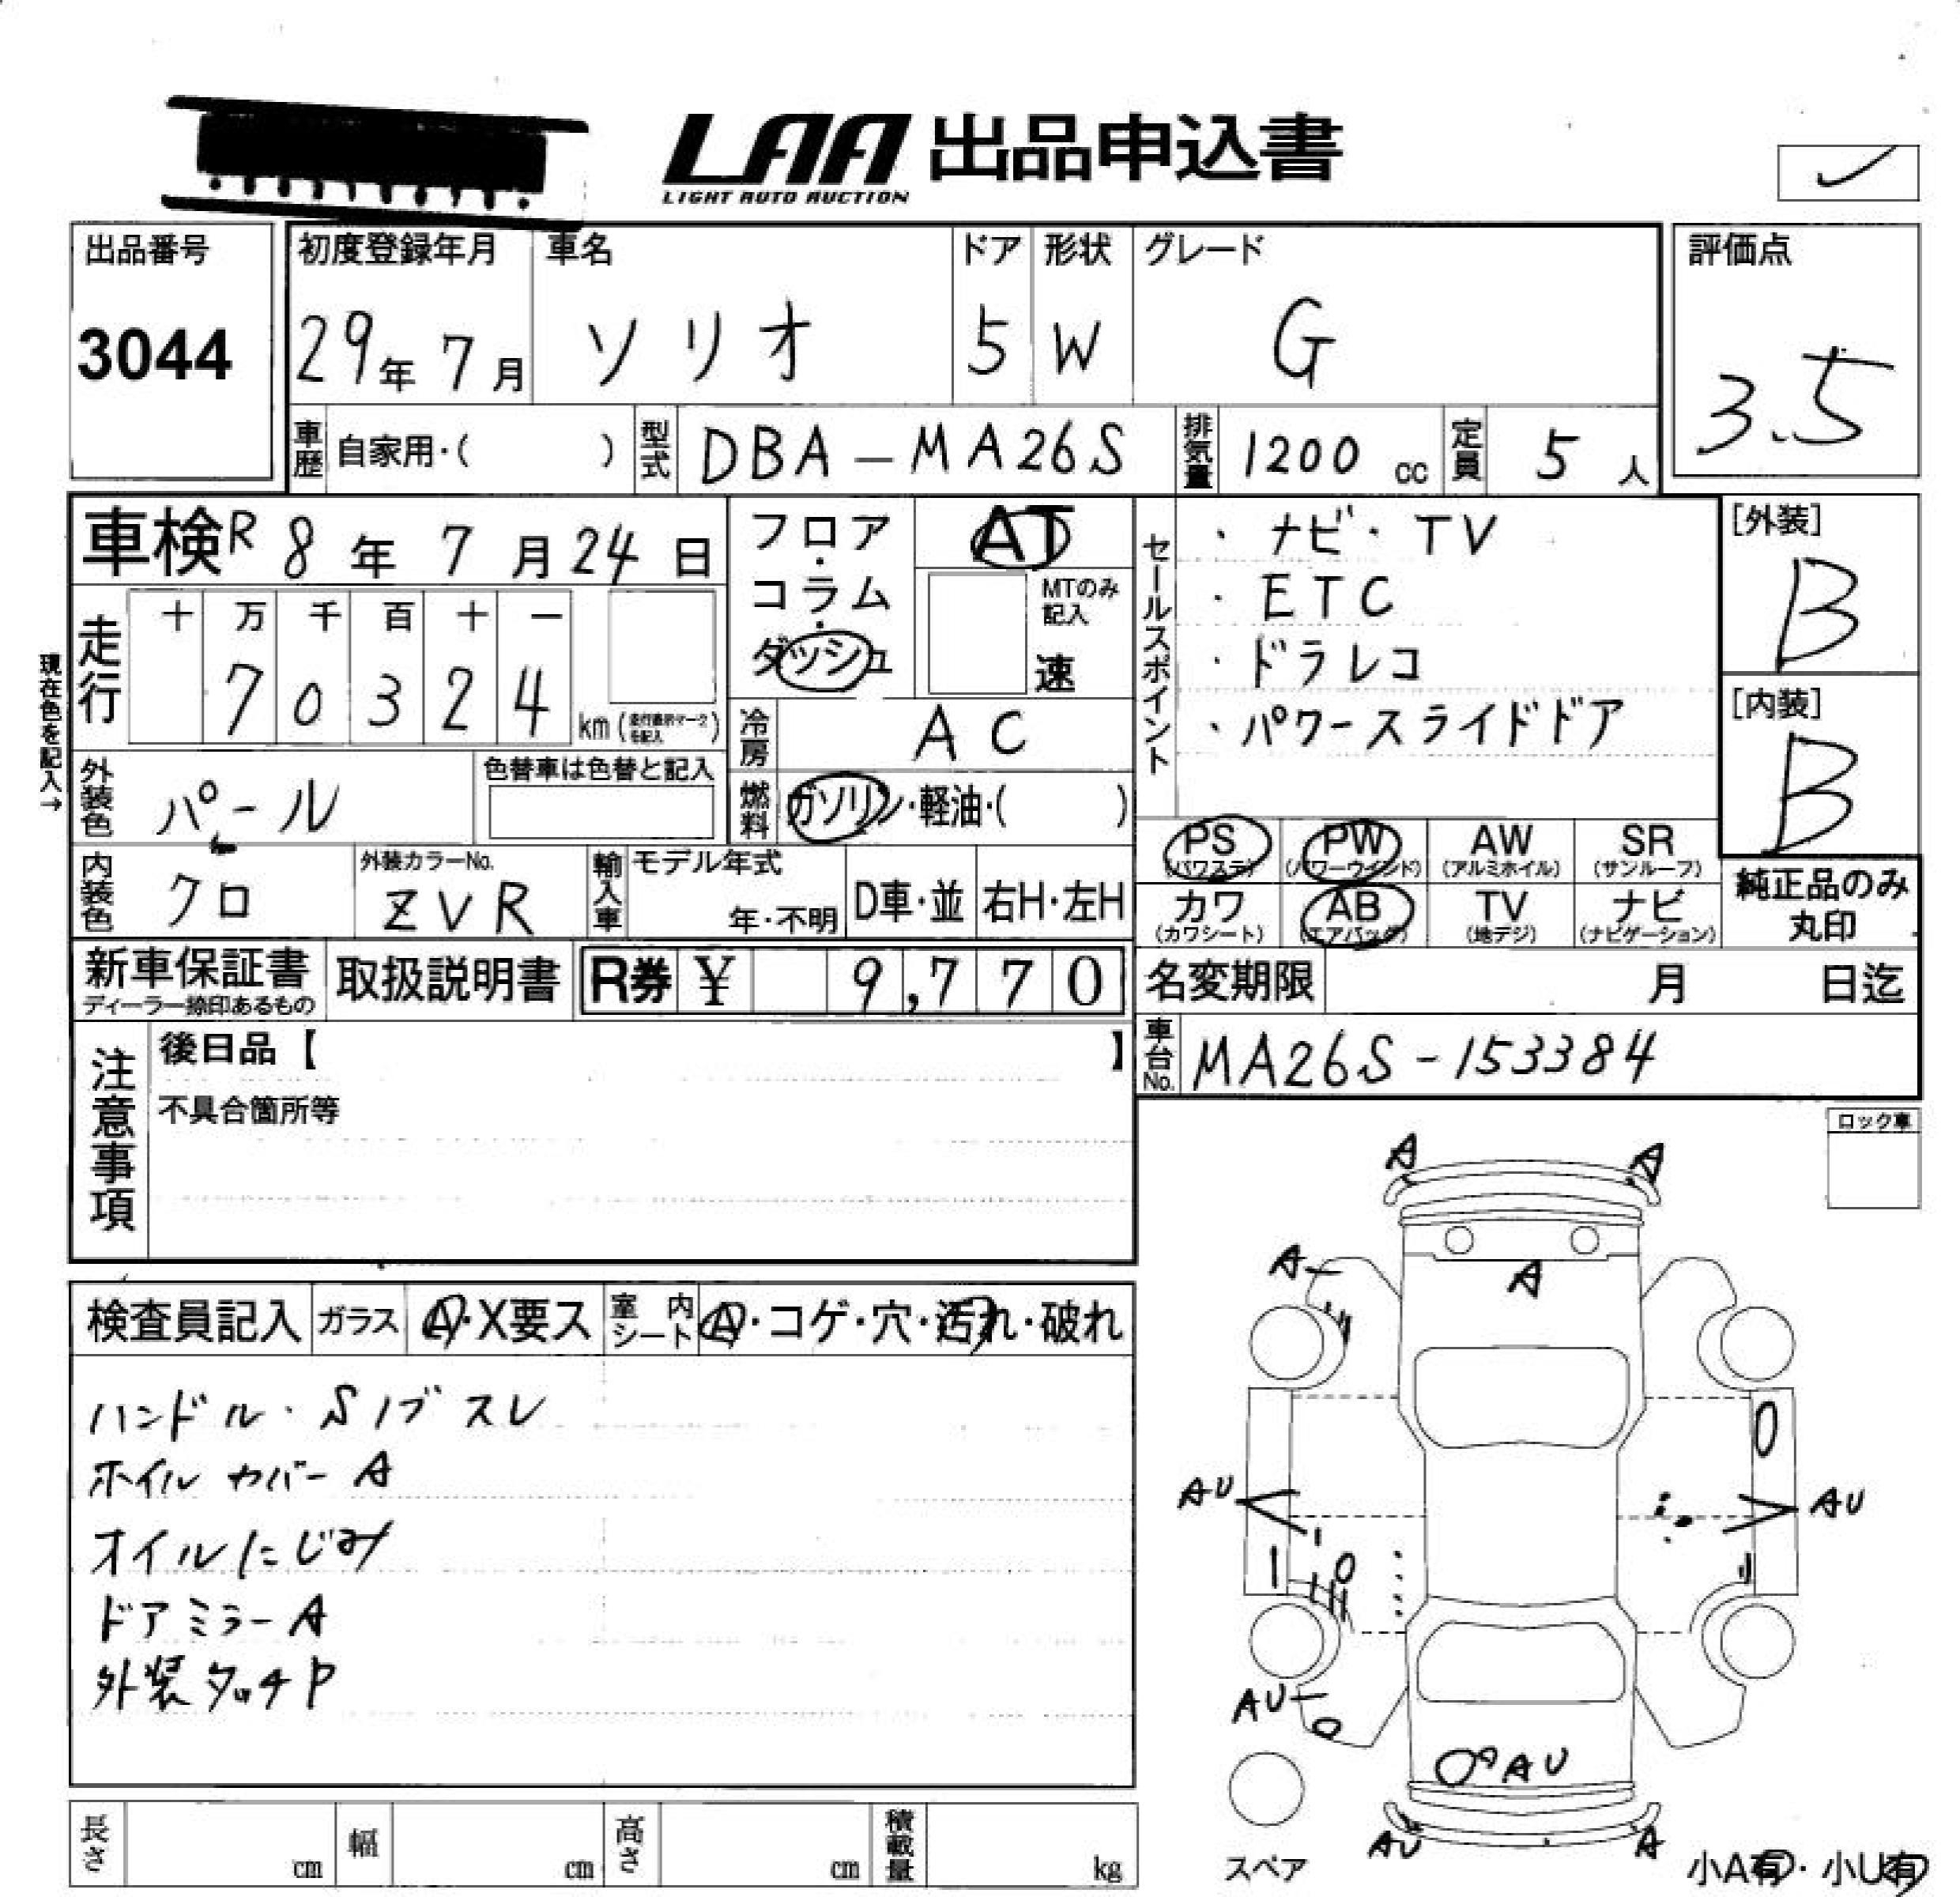 LAA 出品申込書
LIGHT AUTO AUCTION
出品番号
3044
初度登録年月
29年 7月
車名
ソリオ
ドア
5
形状
W
グレード
G
評価点
3.5
車歴 自家用・( )
型式 DBA-MA26S
排気量 1200 cc
定員 5 人
車検 R 8年 7月 24日
フロア・コラム・ダッシュ
AT
MTのみ記入
速
セールスポイント
・ナビ・TV
・ETC
・ドラレコ
・パワースライドドア
[外装]
B
[内装]
B
現在色を記入→
走行
十 万 千 百 十 一
7 0 3 2 4
km (走行表示マークを記入)
冷房 AC
外装色 パール
色替車は色替と記入
燃料 ガソリン・軽油・( )
PS (パワステ)
PW (パワーウインド)
AW (アルミホイル)
SR (サンルーフ)
内装色 クロ
外装カラーNo.
ZVR
輸入車 モデル年式
年・不明
D車・並
右H・左H
カワ (カワシート)
AB (エアバッグ)
TV (地デジ)
ナビ (ナビゲーション)
純正品のみ
丸印
新車保証書
ディーラー捺印あるもの
取扱説明書
R券 ¥ 9,770
名変期限 月 日迄
注意事項
後日品【 】
不具合箇所等
車台No. MA26S-153384
ロック車
検査員記入
ガラス A・X要ス
室内シート A・コゲ・穴・汚れ・破れ
ハンドル・Sノブスレ
ホイルカバーA
オイルにじみ
ドアミラーA
外装タッチP
A A
A
A
AU AU
AU
AU
AU A
スペア
小A有・小U有
長さ cm
幅 cm
高さ cm
積載量 kg